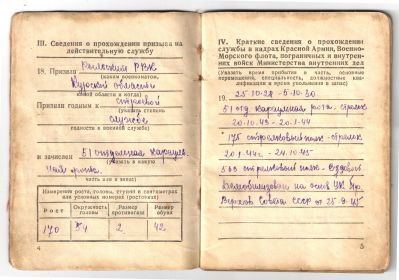 III. Сведения о прохождении призыва на
действительную службу
18. Призван РВК
(каким военкоматом,
Курской области
какой области и когда)
Призван годным к строевой
(указать степень
службе
годности к военной службе)
и зачислен 51 отдельная караульн.
(указать в какую
рота
часть или в запас)
Измерения роста, головы, ступни в сантиметрах
или условных номерах (ростовках)
Рост
Окружность головы
Размер противогаза
Размер обуви
170
2
42
4
IV. Краткие сведения о прохождении
службы в кадрах Красной Армии, Военно-
Морского флота, пограничных и внутрен-
них войск Министерства внутренних дел
(Указать время прибытия в часть, основные
перемещения, специальность, должностные ква-
лификации и время увольнения в запас)
19. 25.10.28 - 5.10.30
51 отд караульная рота - стрелк
20.10.43 - 20.1.44
175 стрелковый полк - стрелк
20.1.44г. - 24.10.45
стрелковый полк - ездовой
Демобилизован на основ Ук Пр.
Верхов Совета СССР от 25-9-45
5